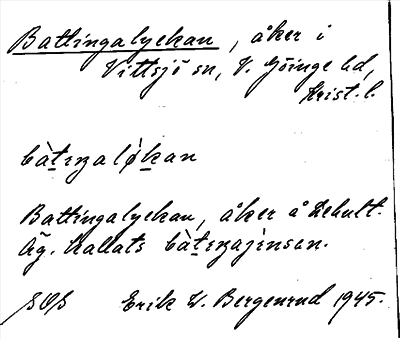 Battingalyckan, åker i
Vittsjö sn, V. Göinge hd,
Krist. l.
bàtıŋalỳkan
Battingalyckan, åker å Dehult.
Äg. kallats bàtıŋajìnsen.
SOS Erik W. Bergenrud 1945.